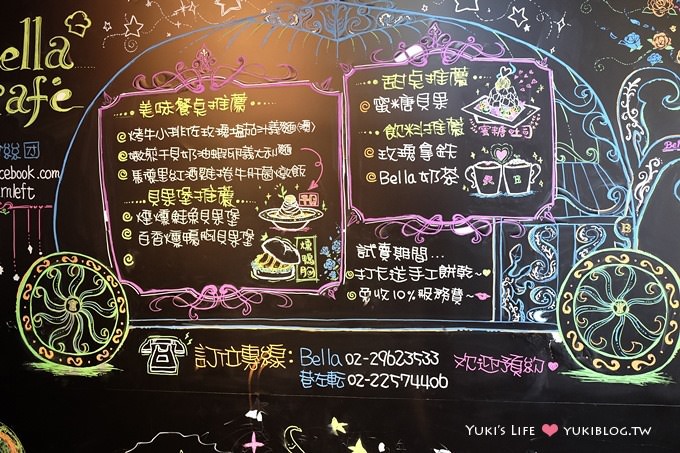 Bella
Café
絲團
facebook.com
rnleft
美味餐桌推薦
烤牛小排佐玫瑰蕃茄汁義麵(湯)
嫩煎干貝奶油蝦卵義大利麵
馬薩里紅酒雞捲牛肝菌燉飯
貝果堡推薦
煙燻鮭魚貝果堡
百香燻鴨胸貝果堡
燻鴨胸
甜桌推薦
蜜糖貝果
飲料推薦
玫瑰拿鉄
Bella奶茶
蜜糖吐司
試賣期間...
打卡送手工餅乾~
免收10%服務費~
訂位專線:
Bella 02-29623533
巷左転 02-22574406
欢迎預約
YUKI'S LIFE ❤ YUKIBLOG.TW